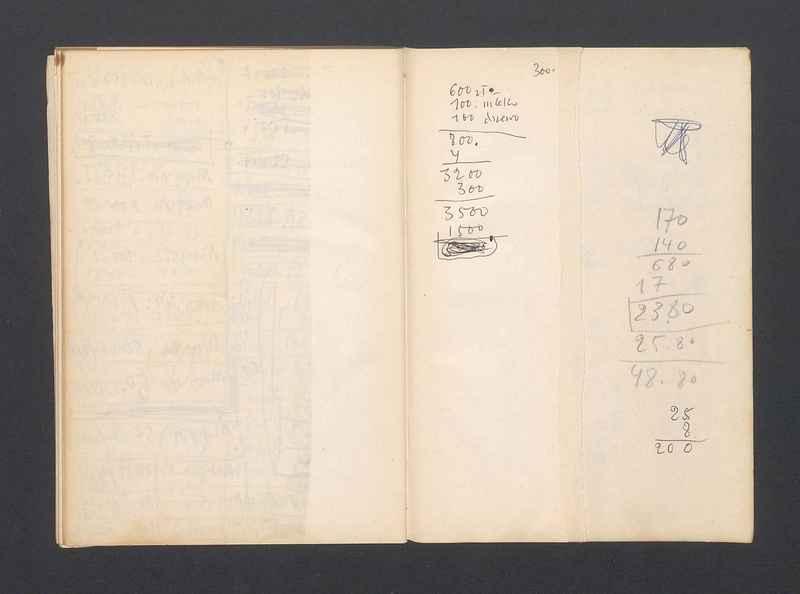 300.
600 zł
100. mleko
100 drzewo
800.
4
3200
300
3500
1500
170
140
680
17
23.80
25.80
48.80
25
8
200